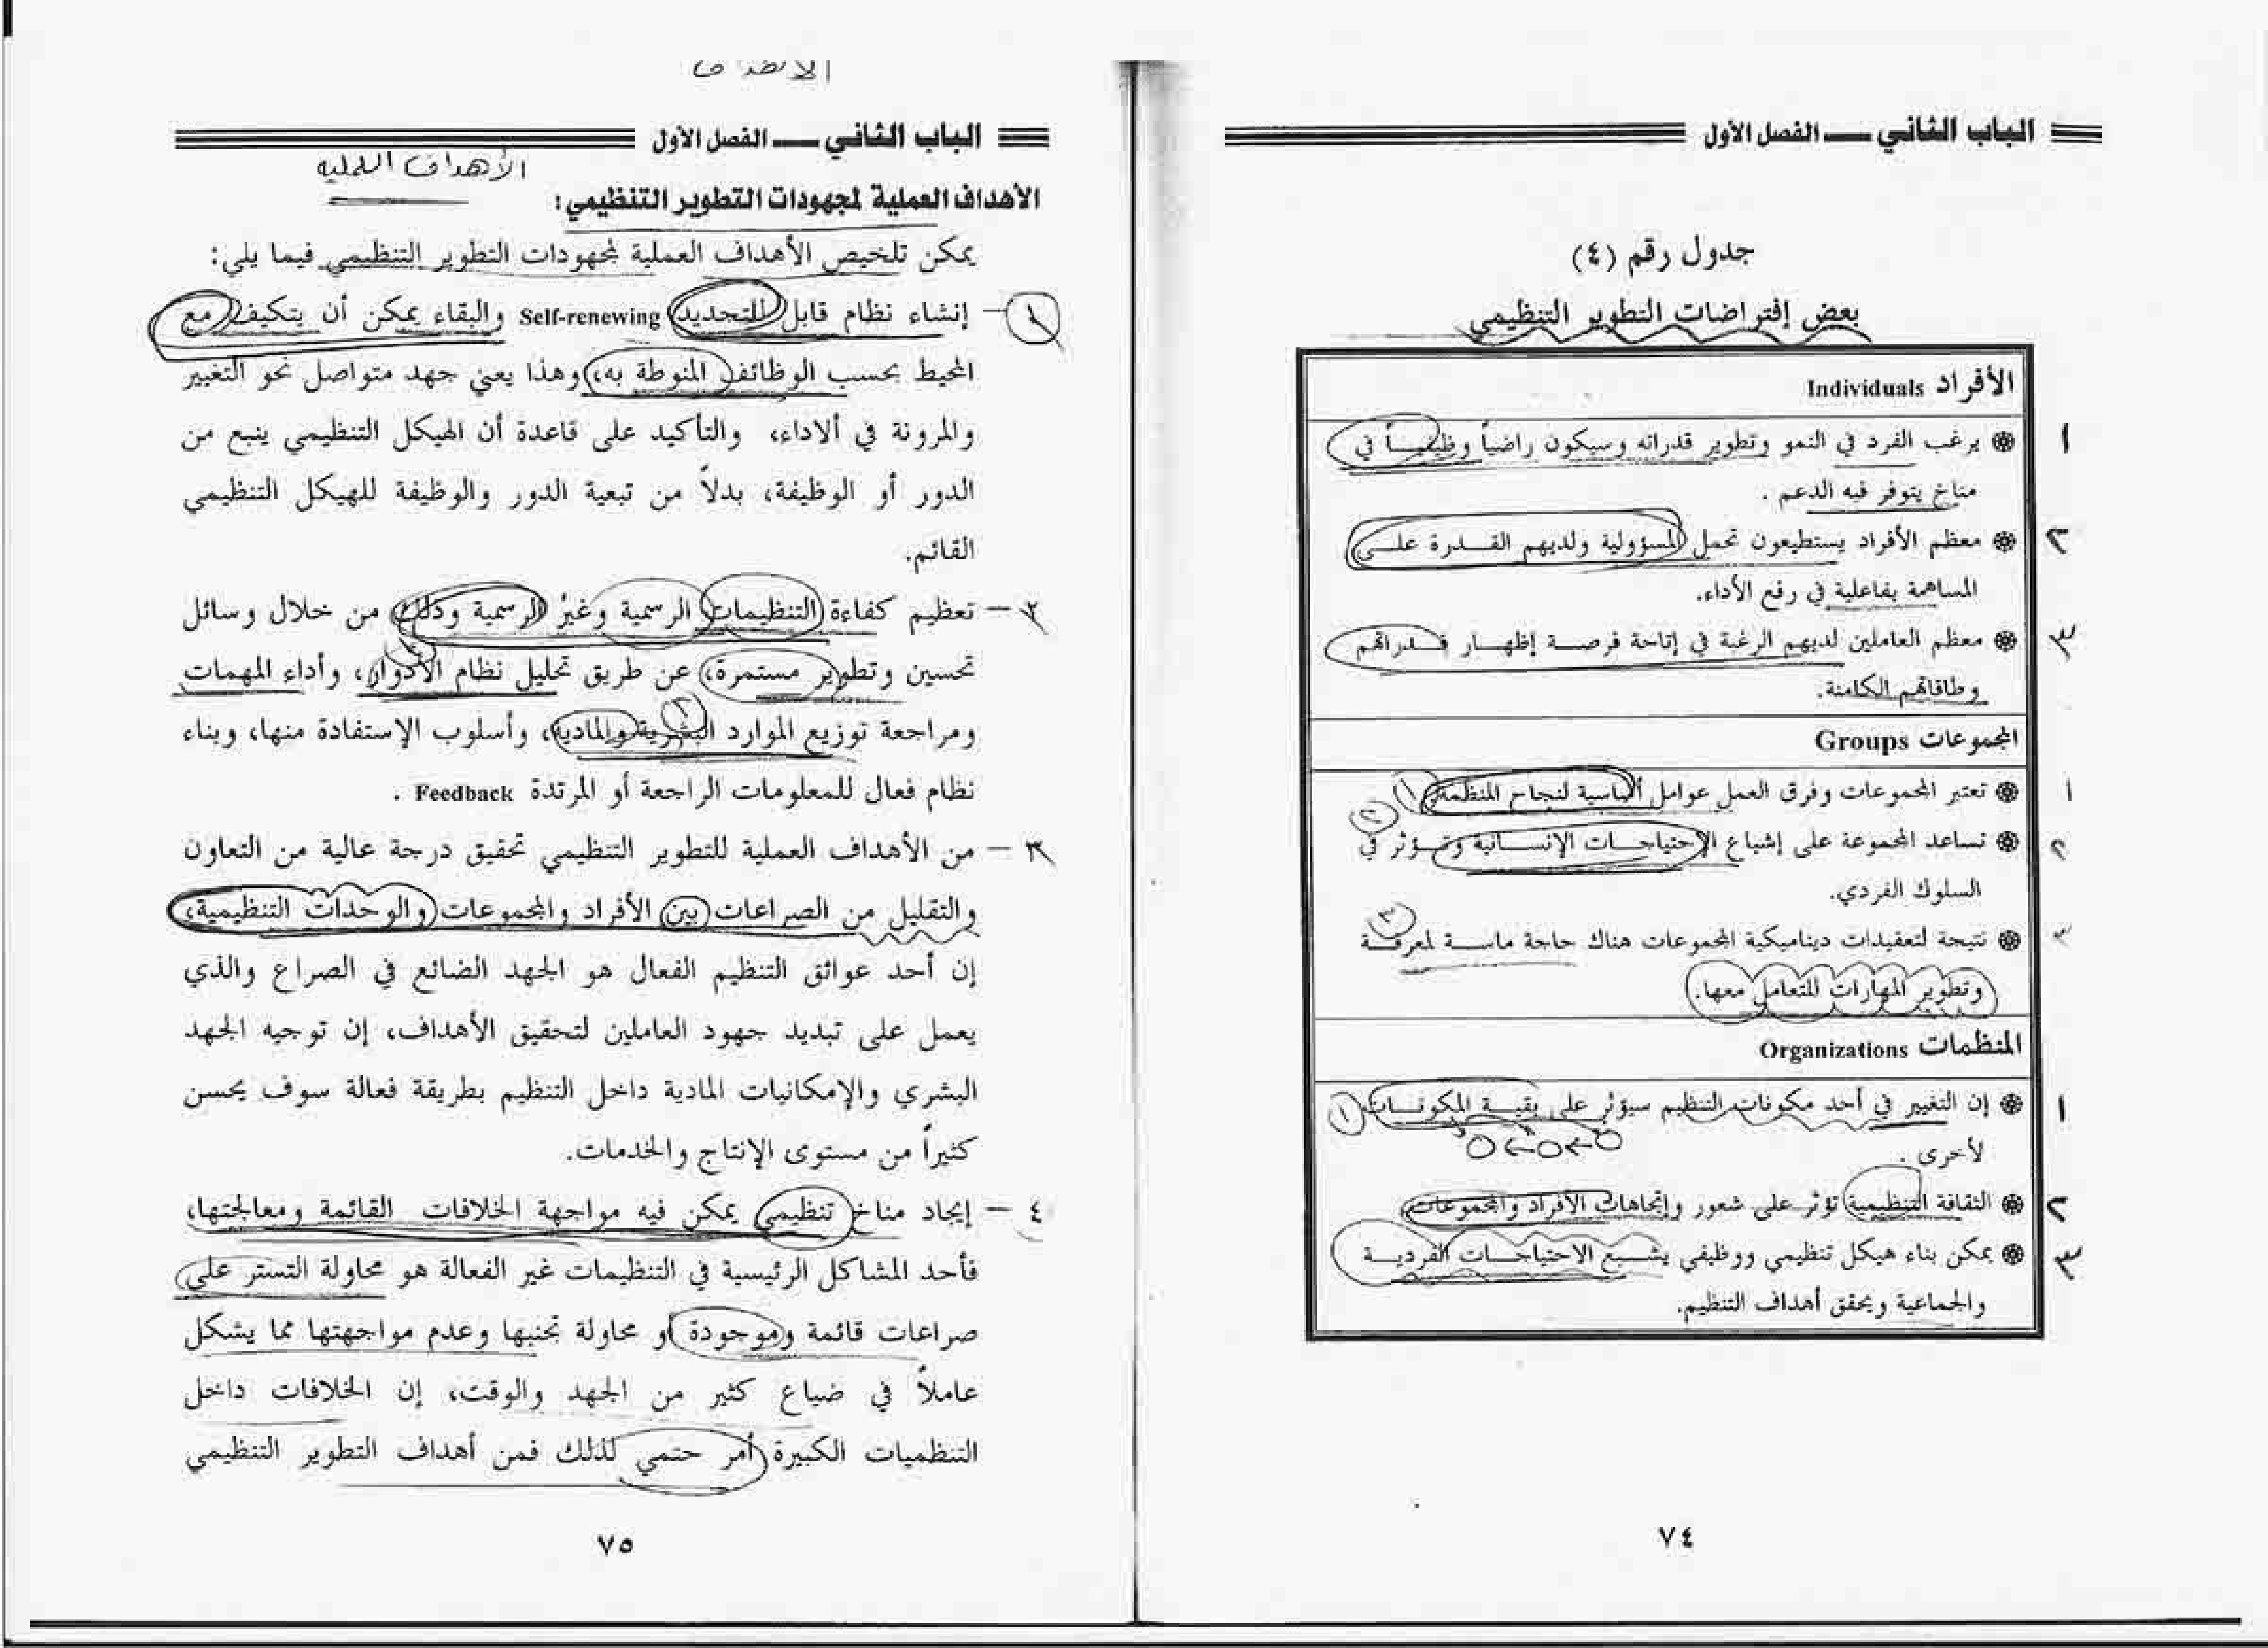 الباب الثاني ـــ الفصل الأول
جدول رقم (٤)
بعض إفتراضات التطوير التنظيمي
الأفراد Individuals
١ ❁ يرغب الفرد في النمو وتطوير قدراته وسيكون راضياً وظيفيـــاً في
مناخ يتوفر فيه الدعم .
٢ ❁ معظم الأفراد يستطيعون تحمل المسؤولية ولديهم القـــدرة علـــى
المساهمة بفاعلية في رفع الأداء.
٣ ❁ معظم العاملين لديهم الرغبة في إتاحة فرصـــة إظهـــار قـــدراتهم
وطاقاتهم الكامنة.
المجموعات Groups
١ ❁ تعتبر المجموعات وفرق العمل عوامل أساسية لنجاح المنظمة. ١
٢ ❁ تساعد المجموعة على إشباع الإحتياجـــات الإنســـانية وتـــؤثر في ٢
السلوك الفردي.
٣ ❁ نتيجة لتعقيدات ديناميكية المجموعات هناك حاجة ماســـة لمعرفـــة ٣
وتطوير المهارات للتعامل معها.
المنظمات Organizations
١ ❁ إن التغيير في أحد مكونات التنظيم سيؤثر على بقيـــة المكونـــات ١
لأخرى .
٢ ❁ الثقافة التنظيمية تؤثر على شعور وإتجاهات الأفراد والمجموعات.
٣ ❁ يمكن بناء هيكل تنظيمي ووظيفي يشـــبع الاحتياجـــات الفرديـــة
والجماعية ويحقق أهداف التنظيم.
٧٤
الأهداف
الباب الثاني ـــ الفصل الأول
الأهداف العملية
الأهداف العملية لمجهودات التطوير التنظيمي:
يمكن تلخيص الأهداف العملية لمجهودات التطوير التنظيمي فيما يلي:
١ – إنشاء نظام قابل للتجديد Self-renewing والبقاء يمكن أن يتكيف مع
المحيط بحسب الوظائف المنوطة به، وهذا يعني جهد متواصل نحو التغيير
والمرونة في ألاداء، والتأكيد على قاعدة أن الهيكل التنظيمي ينبع من
الدور أو الوظيفة، بدلاً من تبعية الدور والوظيفة للهيكل التنظيمي
القائم.
٢ – تعظيم كفاءة التنظيمات الرسمية وغير الرسمية وذلك من خلال وسائل
تحسين وتطوير مستمرة، عن طريق تحليل نظام الأدوار، وأداء المهمات
ومراجعة توزيع الموارد البشرية والمادية، وأسلوب الإستفادة منها، وبناء
نظام فعال للمعلومات الراجعة أو المرتدة Feedback .
٣ – من الأهداف العملية للتطوير التنظيمي تحقيق درجة عالية من التعاون
والتقليل من الصراعات بين الأفراد والمجموعات والوحدات التنظيمية،
إن أحد عوائق التنظيم الفعال هو الجهد الضائع في الصراع والذي
يعمل على تبديد جهود العاملين لتحقيق الأهداف، إن توجيه الجهد
البشري والإمكانيات المادية داخل التنظيم بطريقة فعالة سوف يحسن
كثيراً من مستوى الإنتاج والخدمات.
٤ – إيجاد مناخ تنظيمي يمكن فيه مواجهة الخلافات القائمة ومعالجتها،
فأحد المشاكل الرئيسية في التنظيمات غير الفعالة هو محاولة التستر على
صراعات قائمة وموجودة أو محاولة تجنبها وعدم مواجهتها مما يشكل
عاملاً في ضياع كثير من الجهد والوقت، إن الخلافات داخل
التنظميات الكبيرة أمر حتمي لذلك فمن أهداف التطوير التنظيمي
٧٥